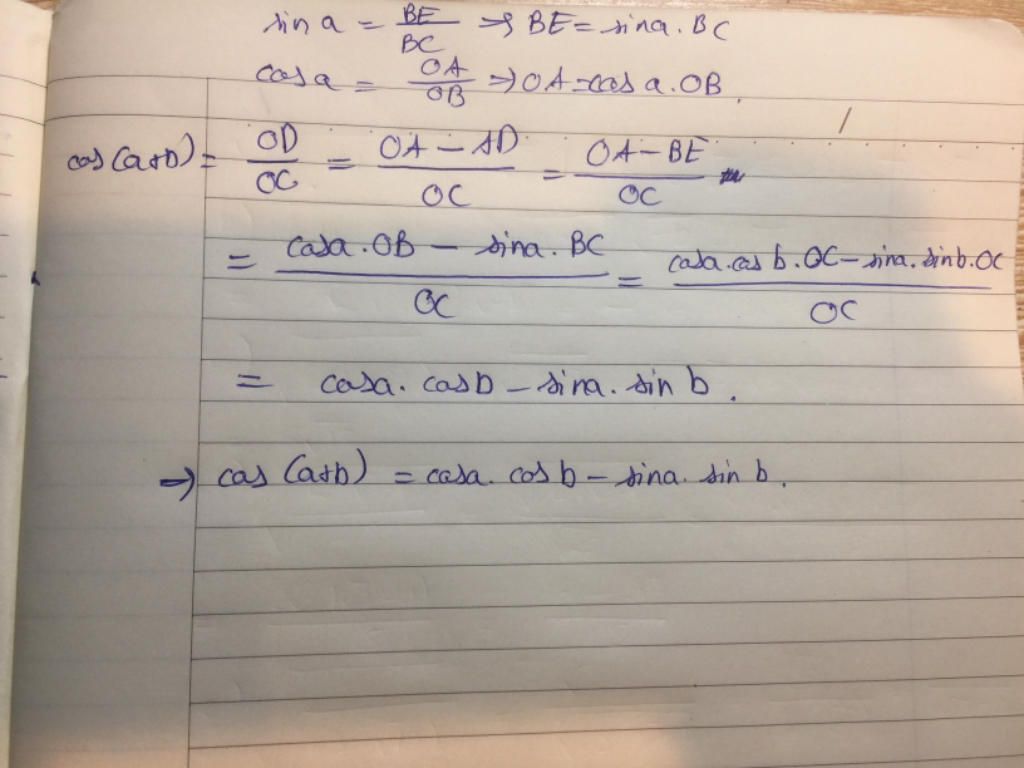 sin a = BE/BC => BE = sin a . BC
cos a = OA/OB => OA = cos a . OB.
cos(a+b) = OD/OC = (OA - AD)/OC = (OA - BE)/OC
= (cos a . OB - sin a . BC)/OC = (cos a . cos b . OC - sin a . sin b . OC)/OC
= cos a . cos b - sin a . sin b .
=> cos (a+b) = cos a . cos b - sin a . sin b .